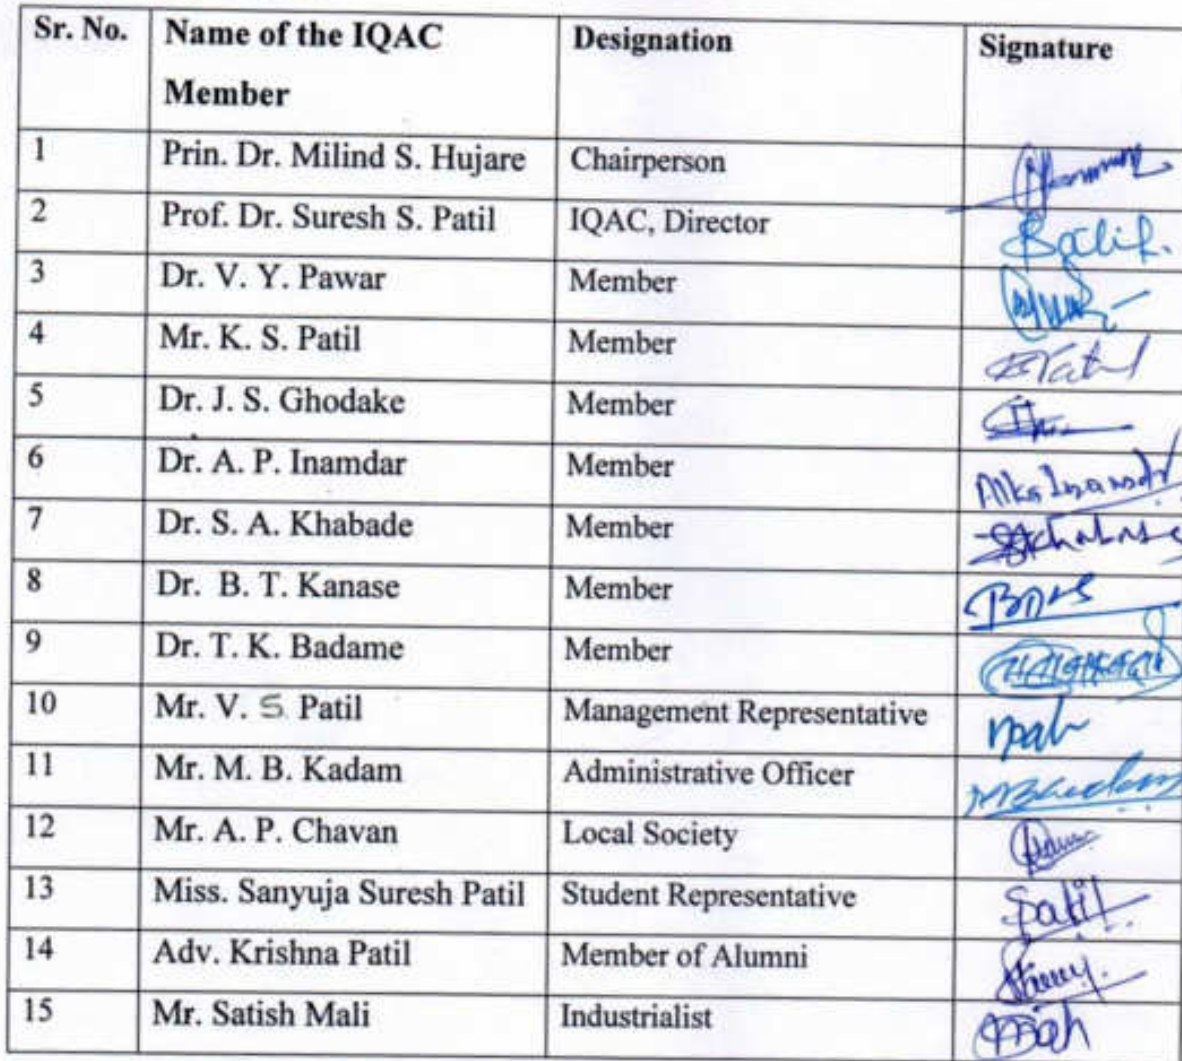 Sr. No. Name of the IQAC Member Designation Signature
1 Prin. Dr. Milind S. Hujare Chairperson
2 Prof. Dr. Suresh S. Patil IQAC, Director
3 Dr. V. Y. Pawar Member
4 Mr. K. S. Patil Member
5 Dr. J. S. Ghodake Member
6 Dr. A. P. Inamdar Member
7 Dr. S. A. Khabade Member
8 Dr. B. T. Kanase Member
9 Dr. T. K. Badame Member
10 Mr. V. S. Patil Management Representative
11 Mr. M. B. Kadam Administrative Officer
12 Mr. A. P. Chavan Local Society
13 Miss. Sanyuja Suresh Patil Student Representative
14 Adv. Krishna Patil Member of Alumni
15 Mr. Satish Mali Industrialist